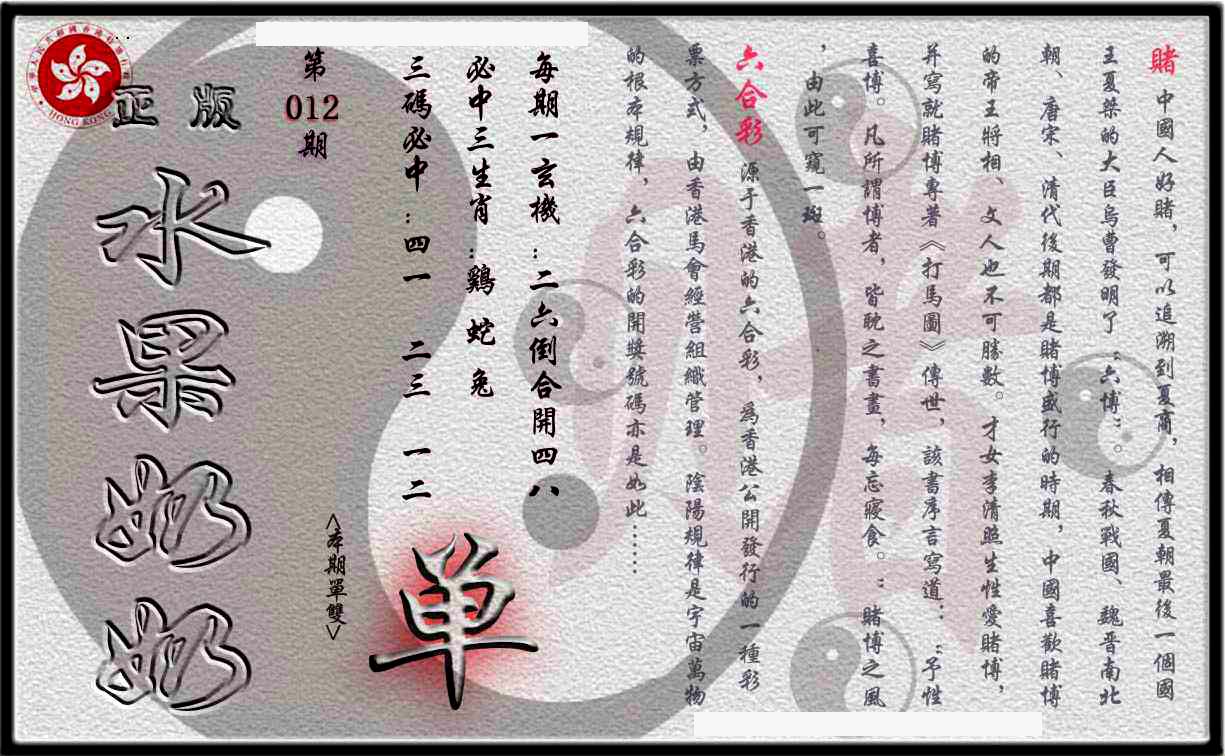 賭 中國人好賭，可以追溯到夏商，相傳夏朝最後一個國
王夏桀的大臣烏曹發明了“六博”。春秋戰國、魏晋南北
朝、唐宋、清代後期都是賭博盛行的時期，中國喜歡賭博
的帝王將相、文人也不可勝數。才女李清照生性愛賭博，
并寫就賭博專著《打馬圖》傳世，該書序言寫道：“予性
喜博。凡所謂博者，皆耽之晝畫，每忘寢食。”賭博之風
，由此可窺一斑。
六合彩 源于香港的六合彩，為香港公開發行的一種彩
票方式，由香港馬會經營組織管理。陰陽規律是宇宙萬物
的根本規律，六合彩的開獎號碼亦是如此……
每期一玄機：二六倒合開四八
必中三生肖：鷄 蛇 兔
三碼必中：四一 二三 一二
单
<本期單雙>
第
012
期
正版
水果奶奶
HONG KONG